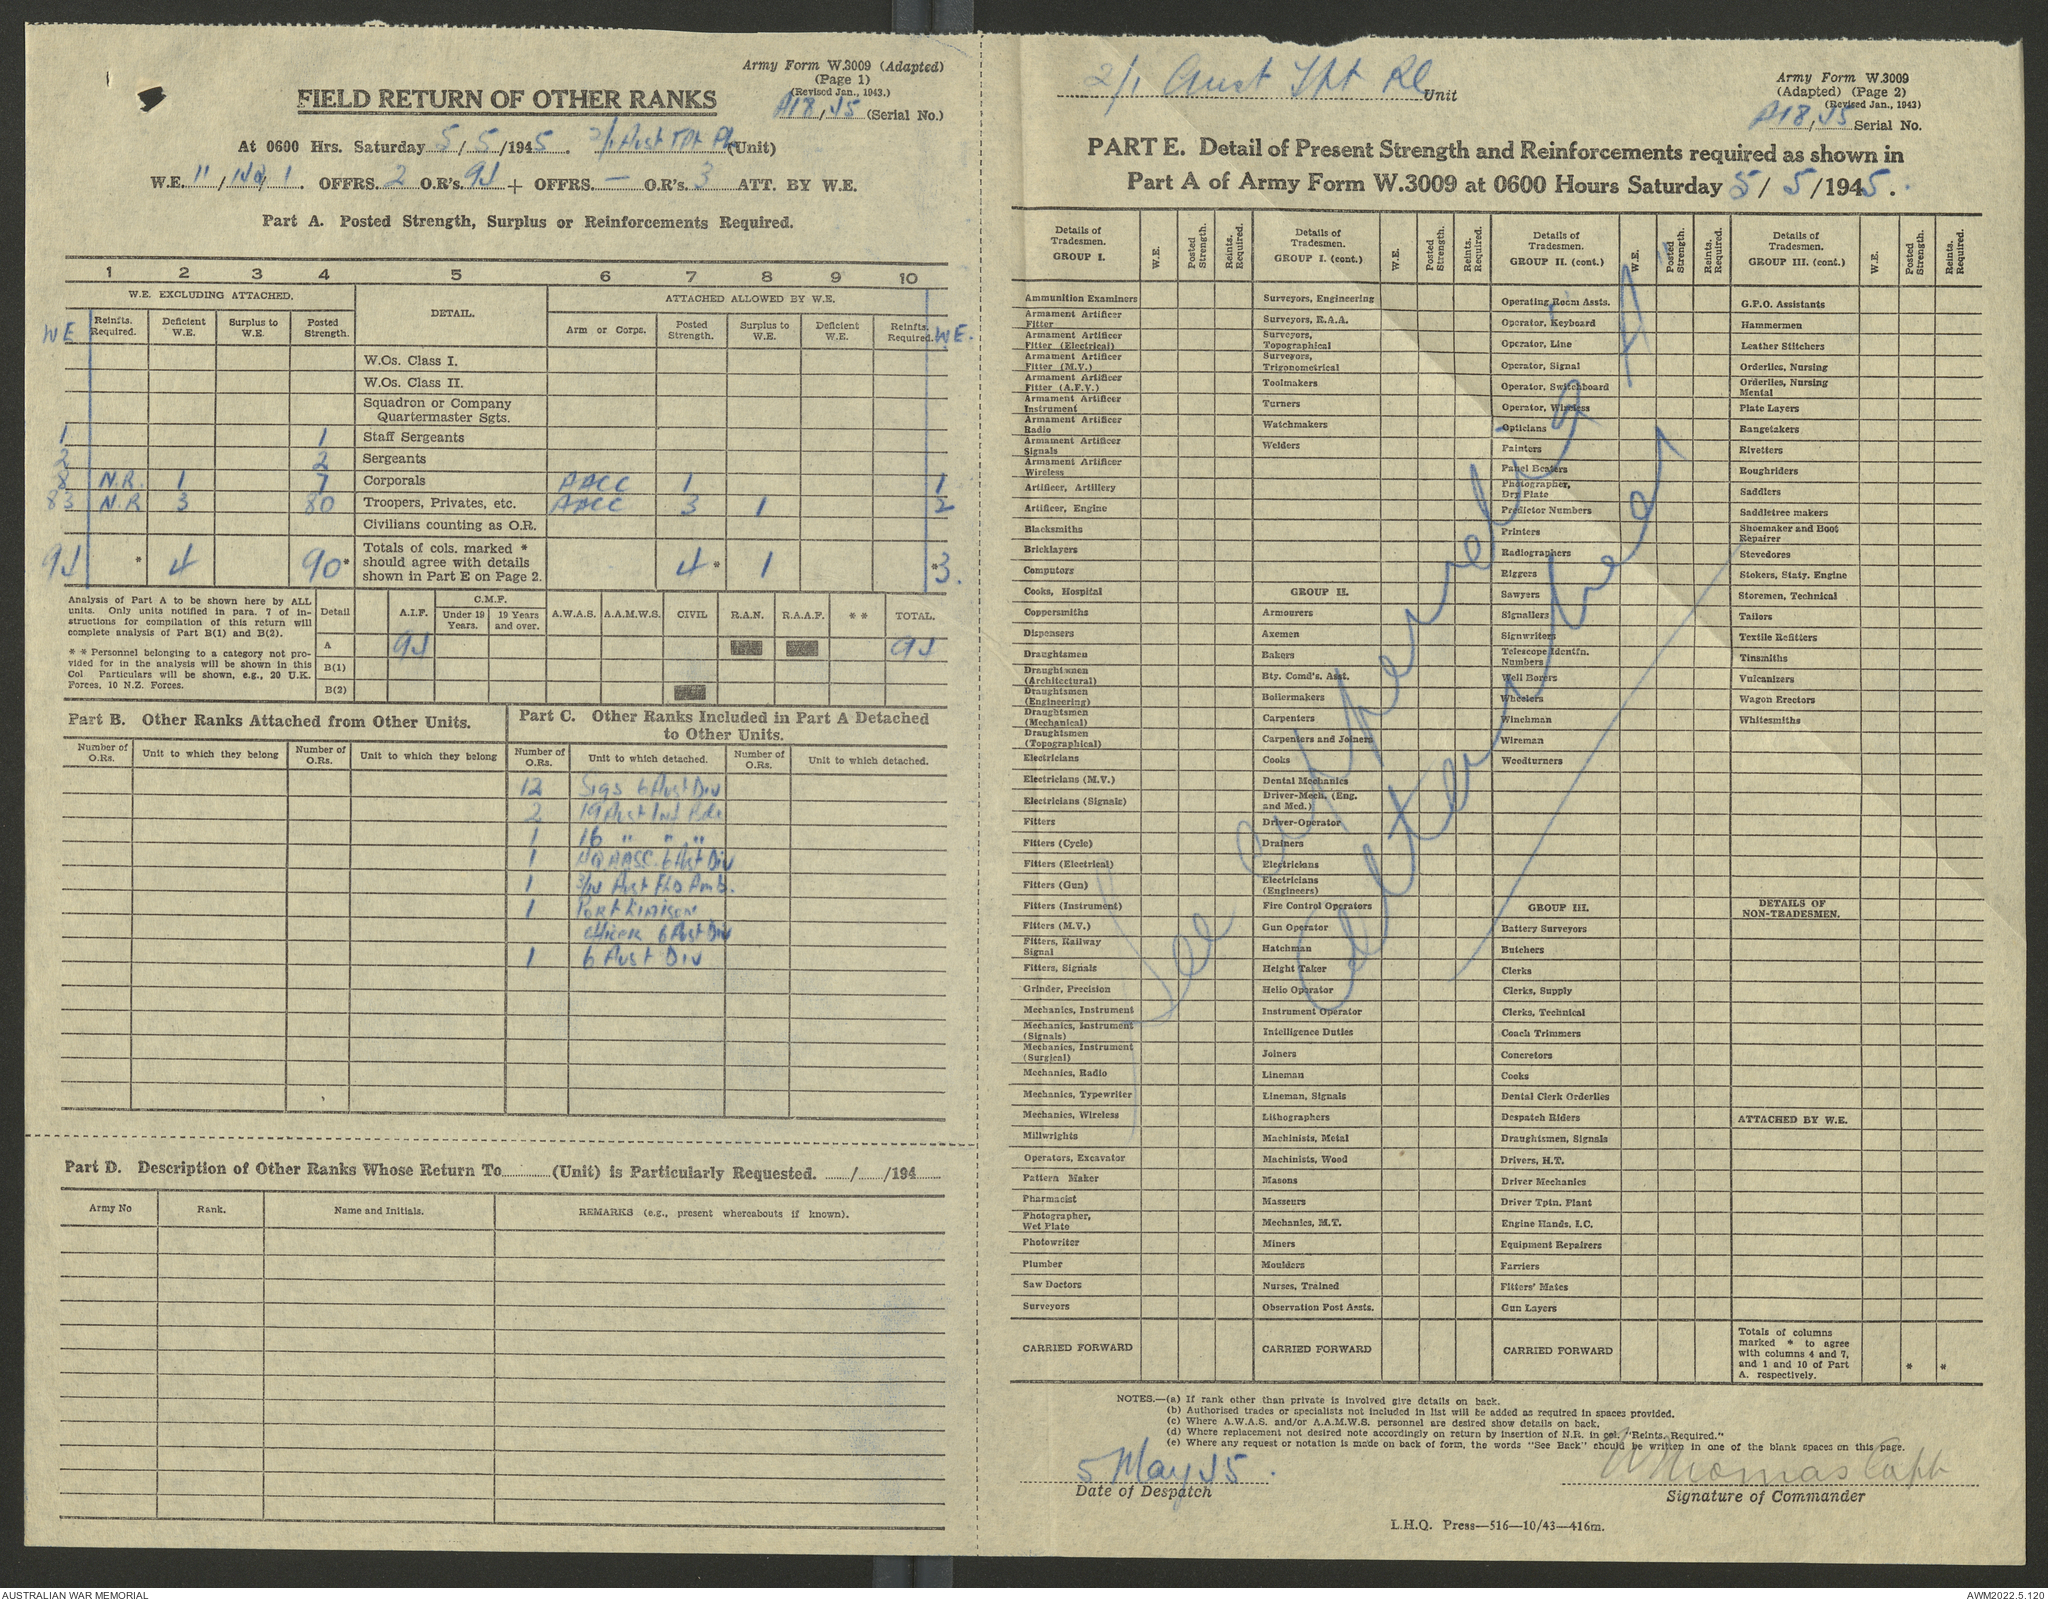 Army Form W.3009 (Adapted)
(Page 1)
(Revised Jan., 1943.)
FIELD RETURN OF OTHER RANKS
A18/45 (Serial No.)
At 0600 Hrs. Saturday 5/5/1945. 2/1 Aust TPt Pl (Unit)
W.E. 11/ / 1. OFFRS. 2 O.R's. 94 + OFFRS. — O.R's. 3 ATT. BY W.E.
Part A. Posted Strength, Surplus or Reinforcements Required.
1 2 3 4 5 6 7 8 9 10
W.E. EXCLUDING ATTACHED. DETAIL. ATTACHED ALLOWED BY W.E.
WE Reinfts. Required. Deficient W.E. Surplus to W.E. Posted Strength. Arm or Corps. Posted Strength. Surplus to W.E. Deficient W.E. Reinfts. Required. WE.
W.Os. Class I.
W.Os. Class II.
Squadron or Company
Quartermaster Sgts.
1 1 Staff Sergeants
2 2 Sergeants
8 N.R. 1 7 Corporals AACC 1 1
83 N.R 3 80 Troopers, Privates, etc. AACC 3 1 2
Civilians counting as O.R.
94 * 4 90* Totals of cols. marked * should agree with details shown in Part E on Page 2. 4* 1 *3.
Analysis of Part A to be shown here by ALL
units. Only units notified in para. 7 of in-
structions for compilation of this return will
complete analysis of Part B(1) and B(2).
* * Personnel belonging to a category not pro-
vided for in the analysis will be shown in this
Col Particulars will be shown, e.g., 20 U.K.
Forces, 10 N.Z. Forces.
Detail A.I.F. C.M.F. Under 19 Years. 19 Years and over. A.W.A.S. A.A.M.W.S. CIVIL R.A.N. R.A.A.F. * * TOTAL.
A 94 94
B(1)
B(2)
Part B. Other Ranks Attached from Other Units.
Number of O.Rs. Unit to which they belong Number of O.Rs. Unit to which they belong
Part C. Other Ranks Included in Part A Detached
to Other Units.
Number of O.Rs. Unit to which detached. Number of O.Rs. Unit to which detached.
12 Sigs 6 Aust Div
2 19 Aust Inf Bde
1 16 " " "
1 HQ AASC 6 Aust Div
1 Aust Fld Amb.
1 Port Liaison
Officer 6 Aust Div
1 6 Aust Div
Part D. Description of Other Ranks Whose Return To (Unit) is Particularly Requested. / /194
Army No Rank. Name and Initials. REMARKS (e.g., present whereabouts if known).
2/1 Aust Tpt Pl Unit
Army Form W.3009
(Adapted) (Page 2)
(Revised Jan., 1943)
A18/45 Serial No.
PART E. Detail of Present Strength and Reinforcements required as shown in
Part A of Army Form W.3009 at 0600 Hours Saturday 5/5/1945.
Details of Tradesmen. GROUP I. W.E. Posted Strength. Reints. Required.
Ammunition Examiners
Armament Artificer Fitter
Armament Artificer Fitter (Electrical)
Armament Artificer Fitter (M.V.)
Armament Artificer Fitter (A.F.V.)
Armament Artificer Instrument
Armament Artificer Radio
Armament Artificer Signals
Armament Artificer Wireless
Artificer, Artillery
Artificer, Engine
Blacksmiths
Bricklayers
Computors
Cooks, Hospital
Coppersmiths
Dispensers
Draughtsmen
Draughtsmen (Architectural)
Draughtsmen (Engineering)
Draughtsmen (Mechanical)
Draughtsmen (Topographical)
Electricians
Electricians (M.V.)
Electricians (Signals)
Fitters
Fitters (Cycle)
Fitters (Electrical)
Fitters (Gun)
Fitters (Instrument)
Fitters (M.V.)
Fitters, Railway Signal
Fitters, Signals
Grinder, Precision
Mechanics, Instrument
Mechanics, Instrument (Signals)
Mechanics, Instrument (Surgical)
Mechanics, Radio
Mechanics, Typewriter
Mechanics, Wireless
Millwrights
Operators, Excavator
Pattern Maker
Pharmacist
Photographer, Wet Plate
Photowriter
Plumber
Saw Doctors
Surveyors
CARRIED FORWARD
Details of Tradesmen. GROUP I. (cont.) W.E. Posted Strength. Reints. Required.
Surveyors, Engineering
Surveyors, R.A.A.
Surveyors, Topographical
Surveyors, Trigonometrical
Toolmakers
Turners
Watchmakers
Welders
GROUP II.
Armourers
Axemen
Bakers
Bty. Comd's. Asst.
Boilermakers
Carpenters
Carpenters and Joiners
Cooks
Dental Mechanics
Driver-Mech. (Eng. and Med.)
Driver-Operator
Drainers
Electricians
Electricians (Engineers)
Fire Control Operators
Gun Operator
Hatchman
Height Taker
Helio Operator
Instrument Operator
Intelligence Duties
Joiners
Lineman
Lineman, Signals
Lithographers
Machinists, Metal
Machinists, Wood
Masons
Masseurs
Mechanics, M.T.
Miners
Moulders
Nurses, Trained
Observation Post Assts.
CARRIED FORWARD
Details of Tradesmen. GROUP II. (cont.) W.E. Posted Strength. Reints. Required.
Operating Room Assts.
Operator, Keyboard
Operator, Line
Operator, Signal
Operator, Switchboard
Operator, Wireless
Opticians
Painters
Panel Beaters
Photographer, Dry Plate
Predictor Numbers
Printers
Radiographers
Riggers
Sawyers
Signallers
Signwriters
Telescope Identfn. Numbers
Well Borers
Wheelers
Winchman
Wireman
Woodturners
GROUP III.
Battery Surveyors
Butchers
Clerks
Clerks, Supply
Clerks, Technical
Coach Trimmers
Concretors
Cooks
Dental Clerk Orderlies
Despatch Riders
Draughtsmen, Signals
Drivers, H.T.
Driver Mechanics
Driver Tptn. Plant
Engine Hands, I.C.
Equipment Repairers
Farriers
Fitters' Mates
Gun Layers
CARRIED FORWARD
Details of Tradesmen. GROUP III. (cont.) W.E. Posted Strength. Reints. Required.
G.P.O. Assistants
Hammermen
Leather Stitchers
Orderlies, Nursing
Orderlies, Nursing Mental
Plate Layers
Rangetakers
Rivetters
Roughriders
Saddlers
Saddletree makers
Shoemaker and Boot Repairer
Stevedores
Stokers, Staty. Engine
Storemen, Technical
Tailors
Textile Refitters
Tinsmiths
Vulcanizers
Wagon Erectors
Whitesmiths
DETAILS OF NON-TRADESMEN.
ATTACHED BY W.E.
Totals of columns marked * to agree with columns 4 and 7, and 1 and 10 of Part A. respectively. * *
See appendix "A"
attached
NOTES.—(a) If rank other than private is involved give details on back.
(b) Authorised trades or specialists not included in list will be added as required in spaces provided.
(c) Where A.W.A.S. and/or A.A.M.W.S. personnel are desired show details on back.
(d) Where replacement not desired note accordingly on return by insertion of N.R. in col. "Reints. Required."
(e) Where any request or notation is made on back of form, the words "See Back" should be written in one of the blank spaces on this page.
5 May 45.
Date of Despatch
W Thomas Capt
Signature of Commander
L.H.Q. Press—516—10/43—416m.
AUSTRALIAN WAR MEMORIAL
AWM2022.5.120